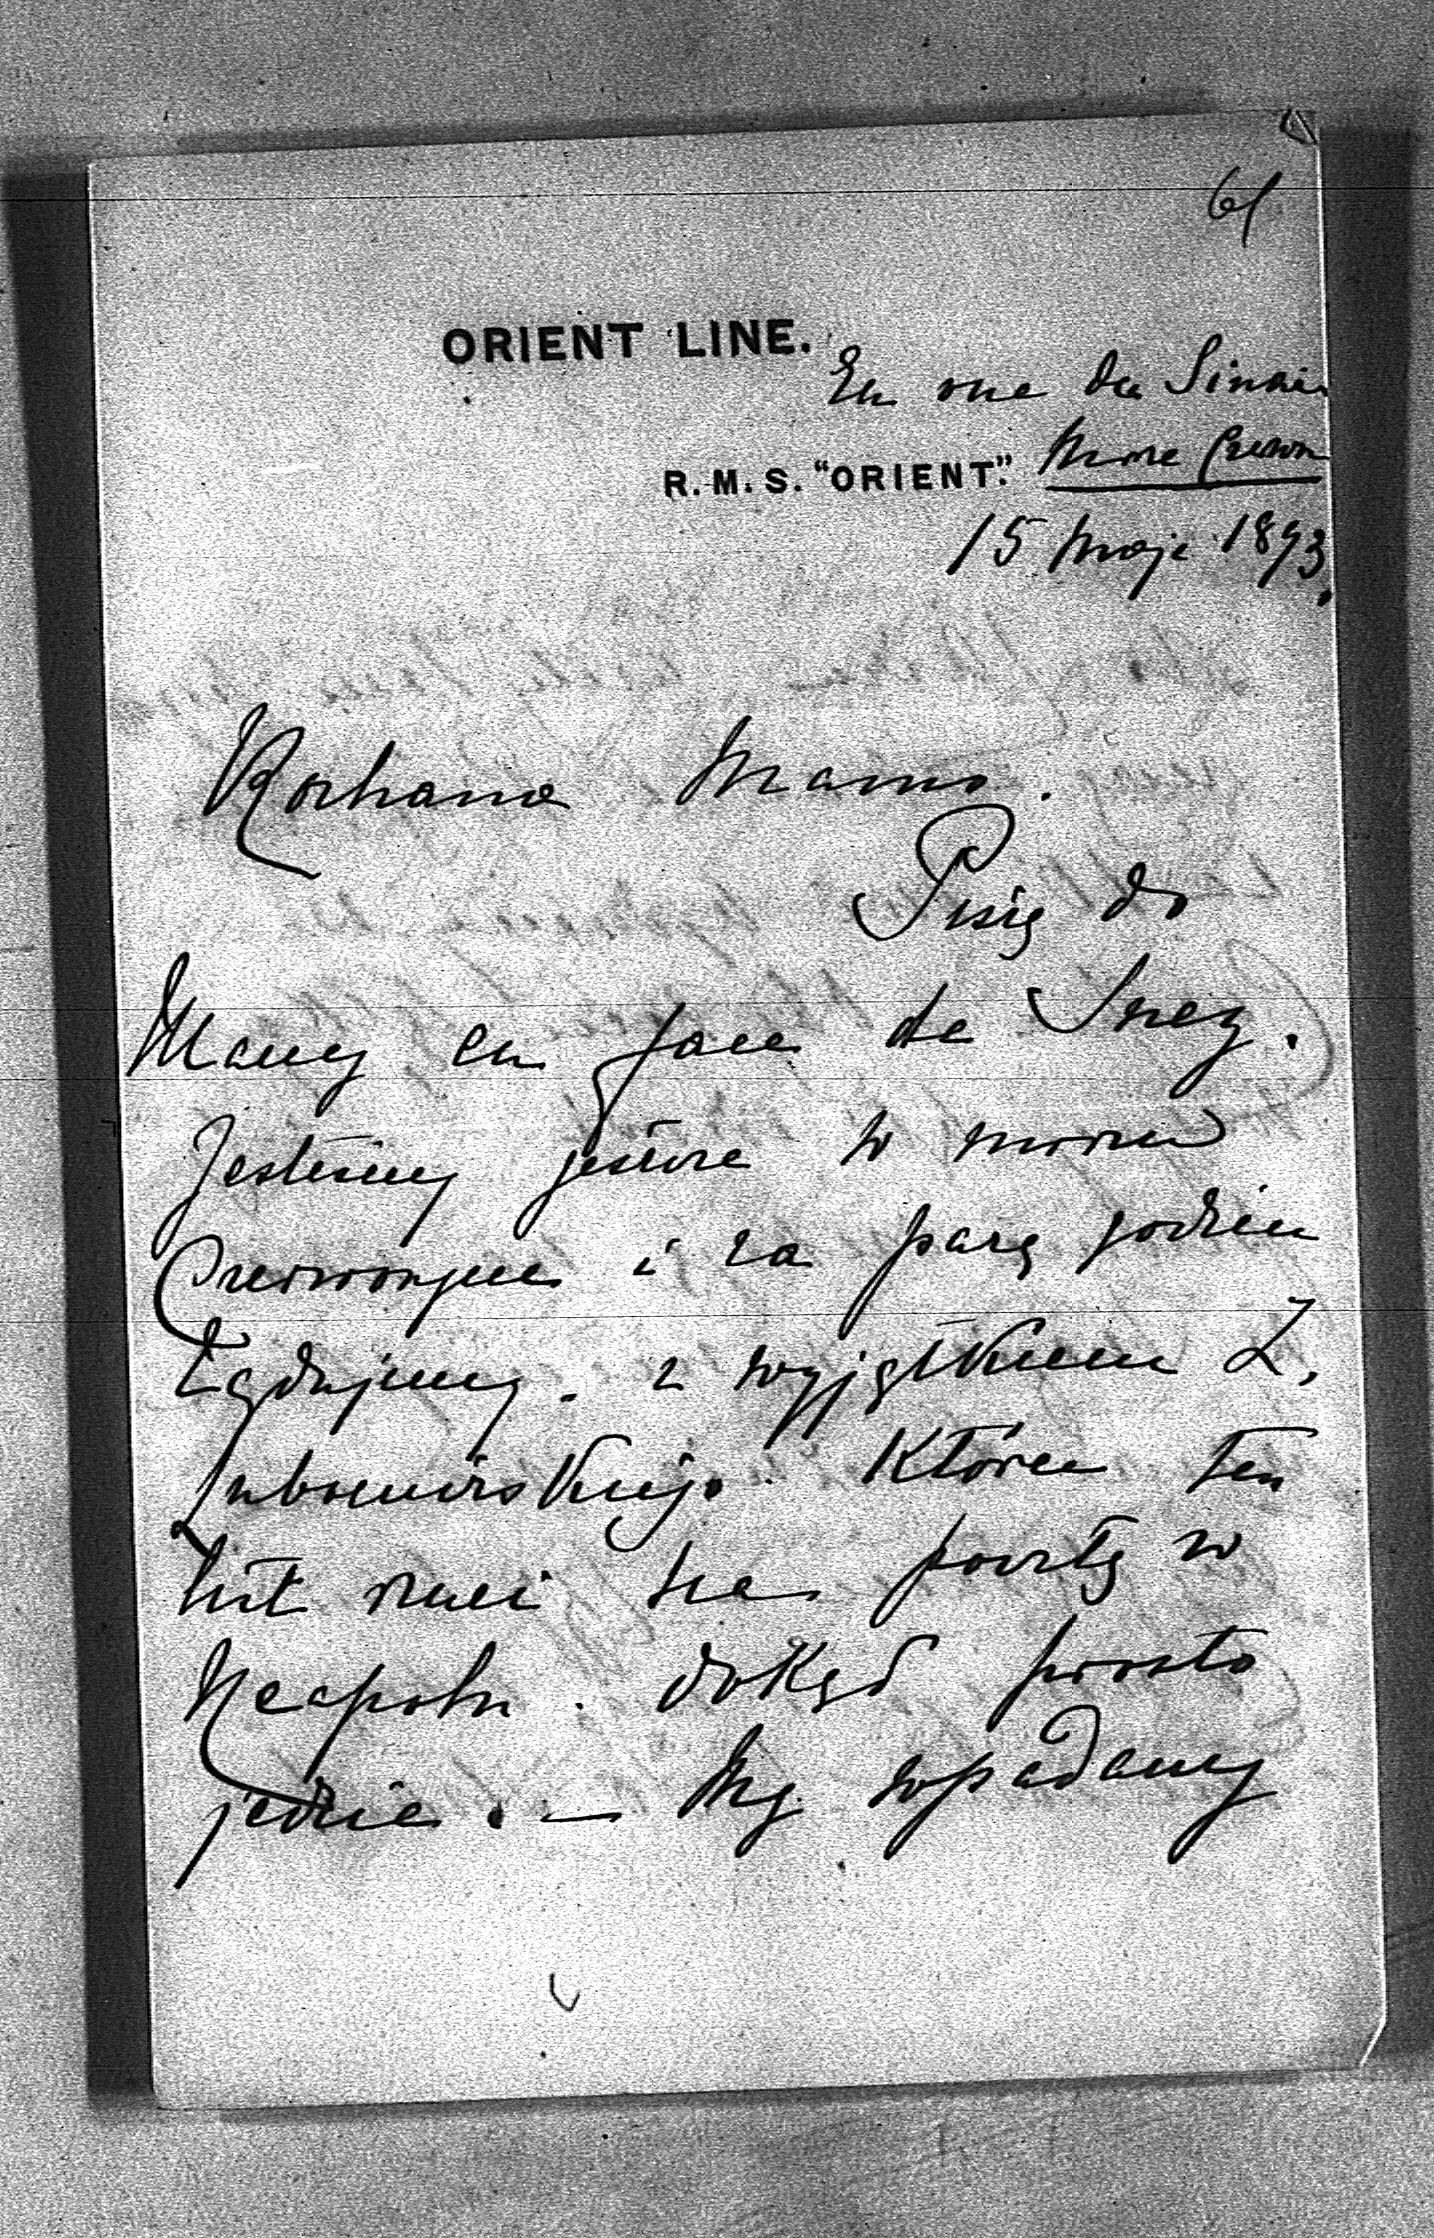 61
ORIENT LINE.
En vue du Sinai
R.M.S. "ORIENT." Morze Czerwon
15 Maja 1893.
Kochana Mamo.
Piszę do
Mamy en face de Suez.
Jesteśmy jeszcze w morzu
Czerwonym i za parę godzin
lądujemy. z wyjątkiem Z.
Lubomirskiego. który ten
list rzuci na pocztę w
Neapolu. dokąd prosto
jedzie. — My wpadamy